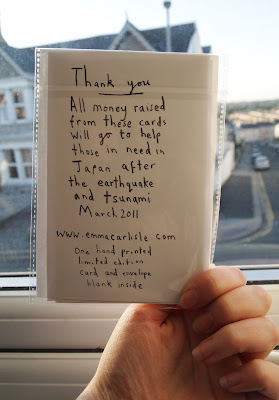 Thank you
All money raised
from these cards
will go to help
those in need in
Japan after
the earthquake
and tsunami
March 2011
www.emmacarlisle.com
One hand printed
limited edition
card and envelope
blank inside